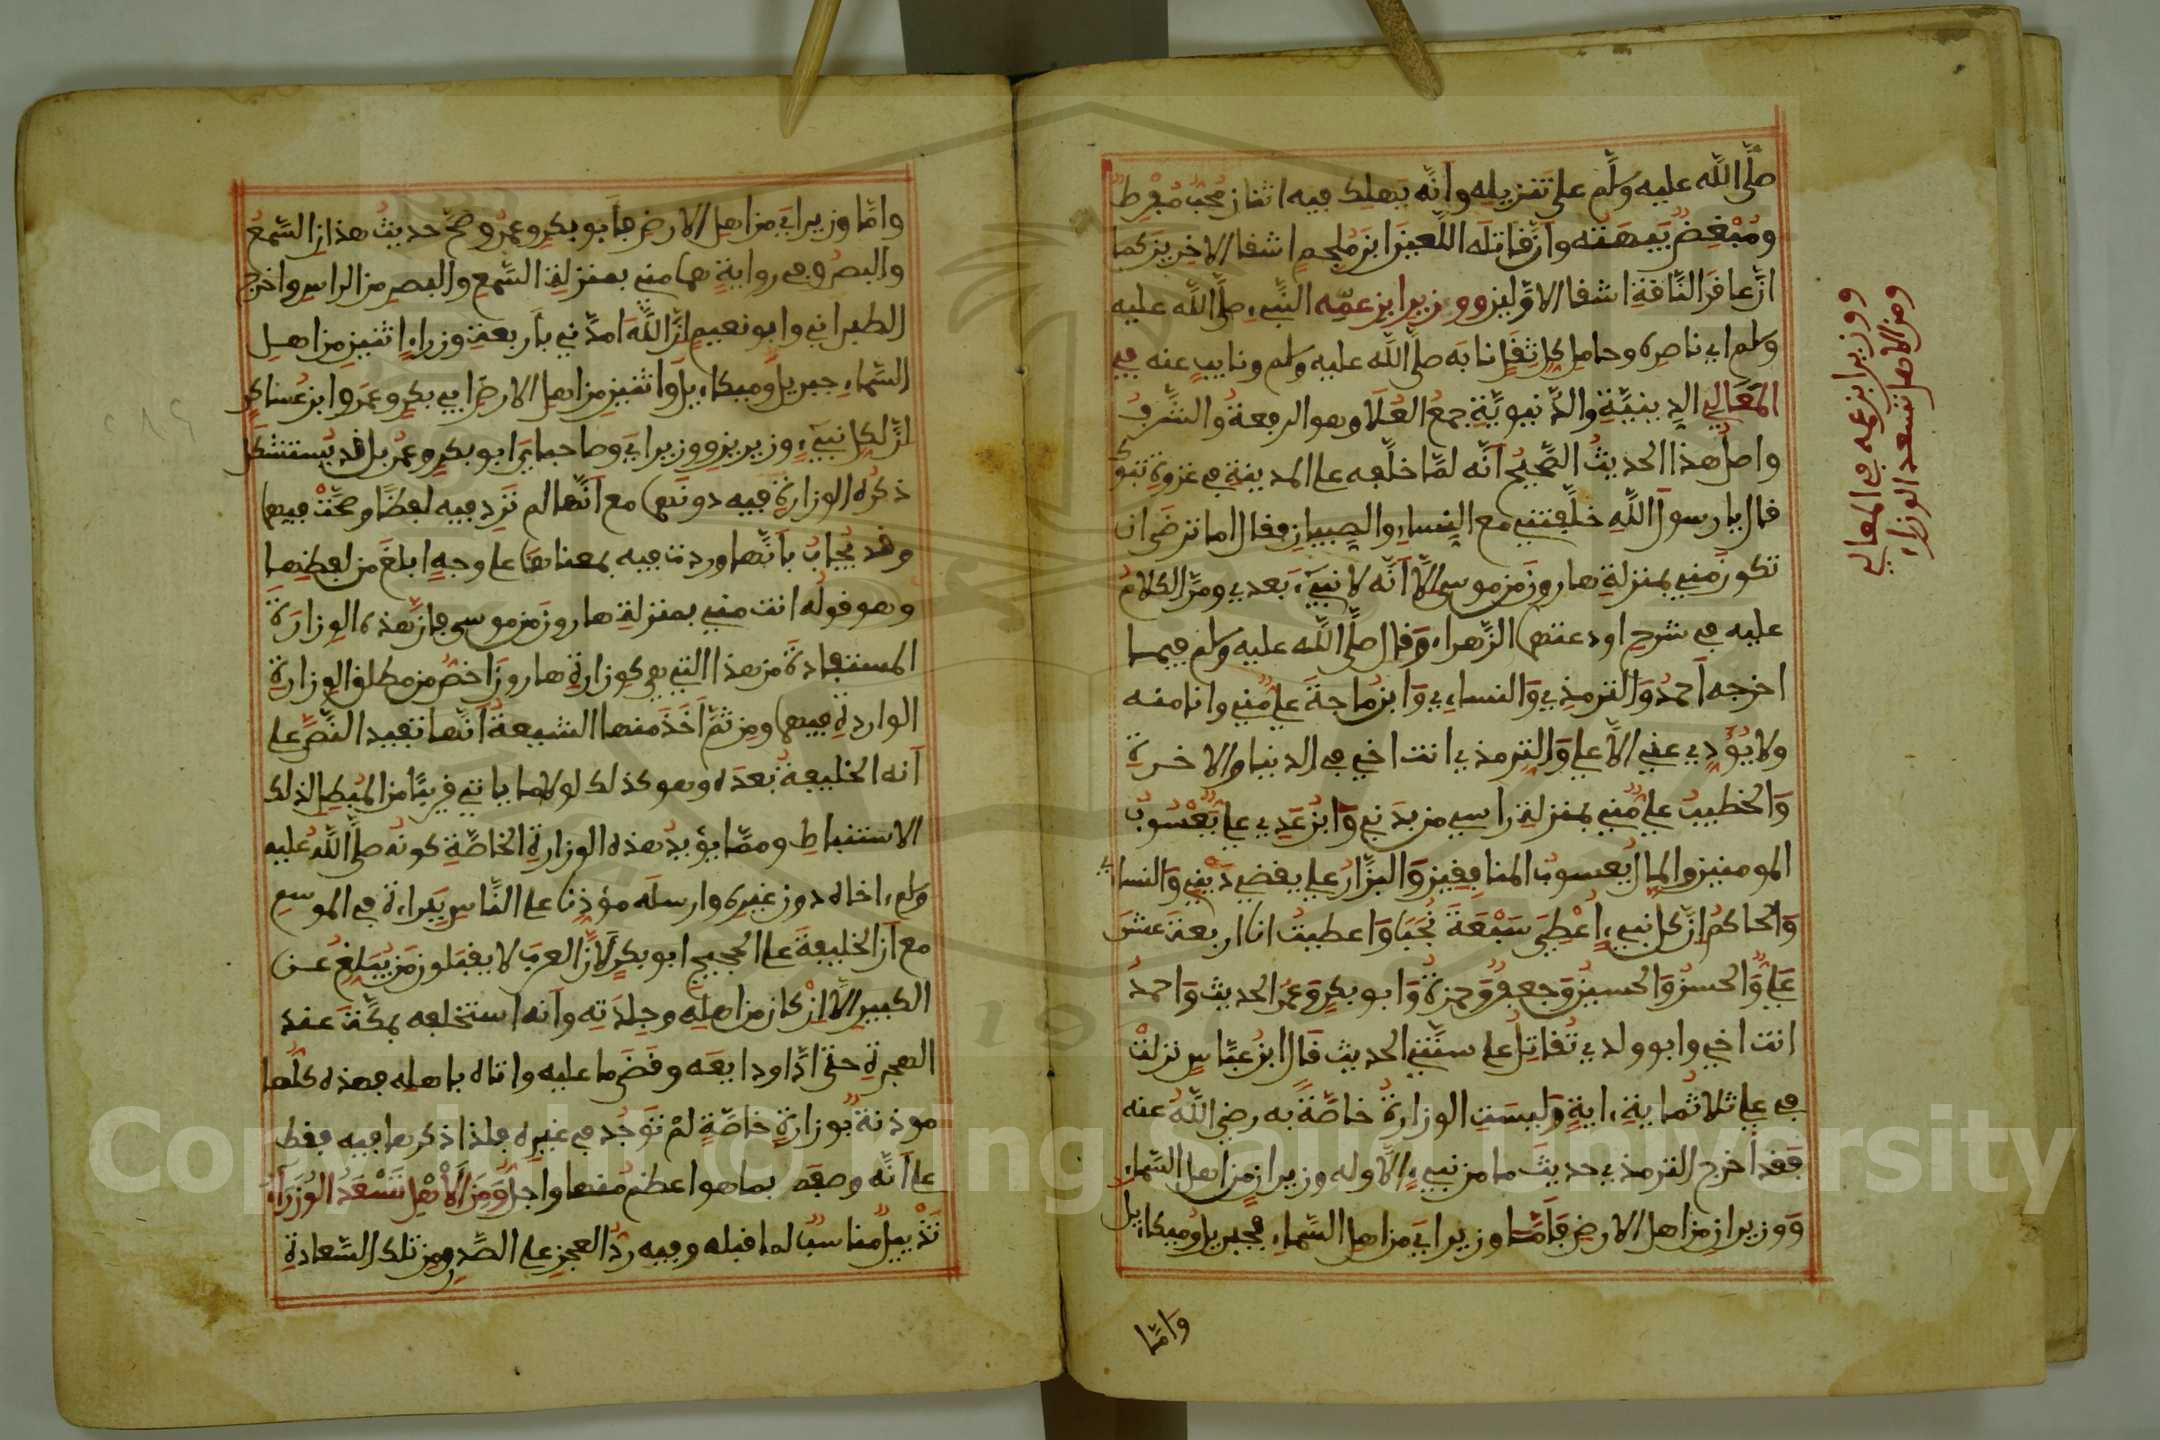 صلى الله عليه وسلم على تنزيله وانه يهلك فيه اثنان محب مفرط
ومبغض يبهته وان قاتله اللعين ابن ملجم اشقا الاخرين كما
ان عاقر الناقة اشقا الاولين ووزير ابن عمه النبي صلى الله عليه
وسلم اي ناصره وحامل كل ثقل نابه صلى الله عليه وسلم ونايب عنه في
المعالي الدينية والدنيوية جمع العلا وهو الرفعة والشرف
واصل هذا الحديث الصحيح انه لما خلفه على المدينة في غزوة تبوك
قال يا رسول الله خلفتني مع النساء والصبيان فقال اما ترضى ان
تكون مني بمنزلة هارون من موسى الا انه لا نبيء بعدي ومر الكلام
عليه في شرح اودعتها الزهراء وقال صلى الله عليه وسلم فيما
اخرجه احمد والترمذي والنساءي وابن ماجة علي مني وانا منه
ولا يؤدي عني الا علي والترمذي انت اخي في الدنيا والاخرة
والخطيب علي مني بمنزلة راسي من بدني وابن عدي علي يعسوب
المومنين والمال يعسوب المنافقين والبزار علي يقضي ديني والنساءي
والحاكم ان كل نبيء اعطي سبعة نجبا واعطيت انا اربعة عشر
علي والحسن والحسين وجعفر وحمزة وابو بكر وعمر الحديث واحمد
انت اخي وابو ولدي تقاتل على سنتي الحديث قال ابن عباس نزلت
في علي ثلاثماية ءاية وليست الوزارة خاصة به رضي الله عنه
فقد اخرج الترمذي حديث ما من نبيء الا وله وزيران من اهل السماء
ووزيران من اهل الارض فاما وزيراي من اهل السماء فجبريل وميكاءيل
واما
ووزير ابن عمه في المعالي
ومن الاهل تسعد الوزراء
واما وزيراي من اهل الارض فابو بكر وعمر وصح حديث هذان السمع
والبصر وفي رواية هما مني بمنزلة السمع والبصر من الراس واخرج
الطبراني وابو نعيم ان الله امدني باربعة وزراء اثنين من اهل
السماء جبريل وميكاءيل واثنين من اهل الارض ابي بكر وعمر وابن عساكر
ان لكل نبيء وزيرين ووزيراي وصاحباي ابو بكر وعمر بل قد يستشكل
ذكره الوزارة فيه دونهما مع انها لم ترد فيه لفظا وصحت فيهما
وقد يجاب بانها وردت فيه بمعناها على وجه ابلغ من لفظها
وهو قوله انت مني بمنزلة هارون من موسى فان هذه الوزارة
المستفادة من هذا التي هي كوزارة هارون اخص من مطلق الوزارة
الواردة فيهما ومن ثم اخذ منها الشيعة انها تفيد النص على
انه الخليفة بعده وهو كذلك لولا ما ياتي قريبا من المبطل لذلك
الاستنباط ومما يؤيد هذه الوزارة الخاصة كونه صلى الله عليه
وسلم ءاخاه دون غيره وارسله مؤذنا على الناس ببراءة في الموسم
مع ان الخليفة على الحجيج ابو بكر لان العرب لا يقبلون من يبلغ عن
الكبير الا ان كان من اهله وجلدته وانه استخلفه بمكة عند
الهجرة حتى ادا ودايعه وقضى ما عليه واتاه باهله فهذه كلها
موذنة بوزارة خاصة لم توجد في غيره فلذا ذكرها فيه فقط
على انه وصفه بما هو اعظم منها واجل ومن الاهل تسعد الوزراء
تذييل مناسب لما قبله وفيه رد العجز على الصدر ومن تلك السعادة
Copyright © King Saud University